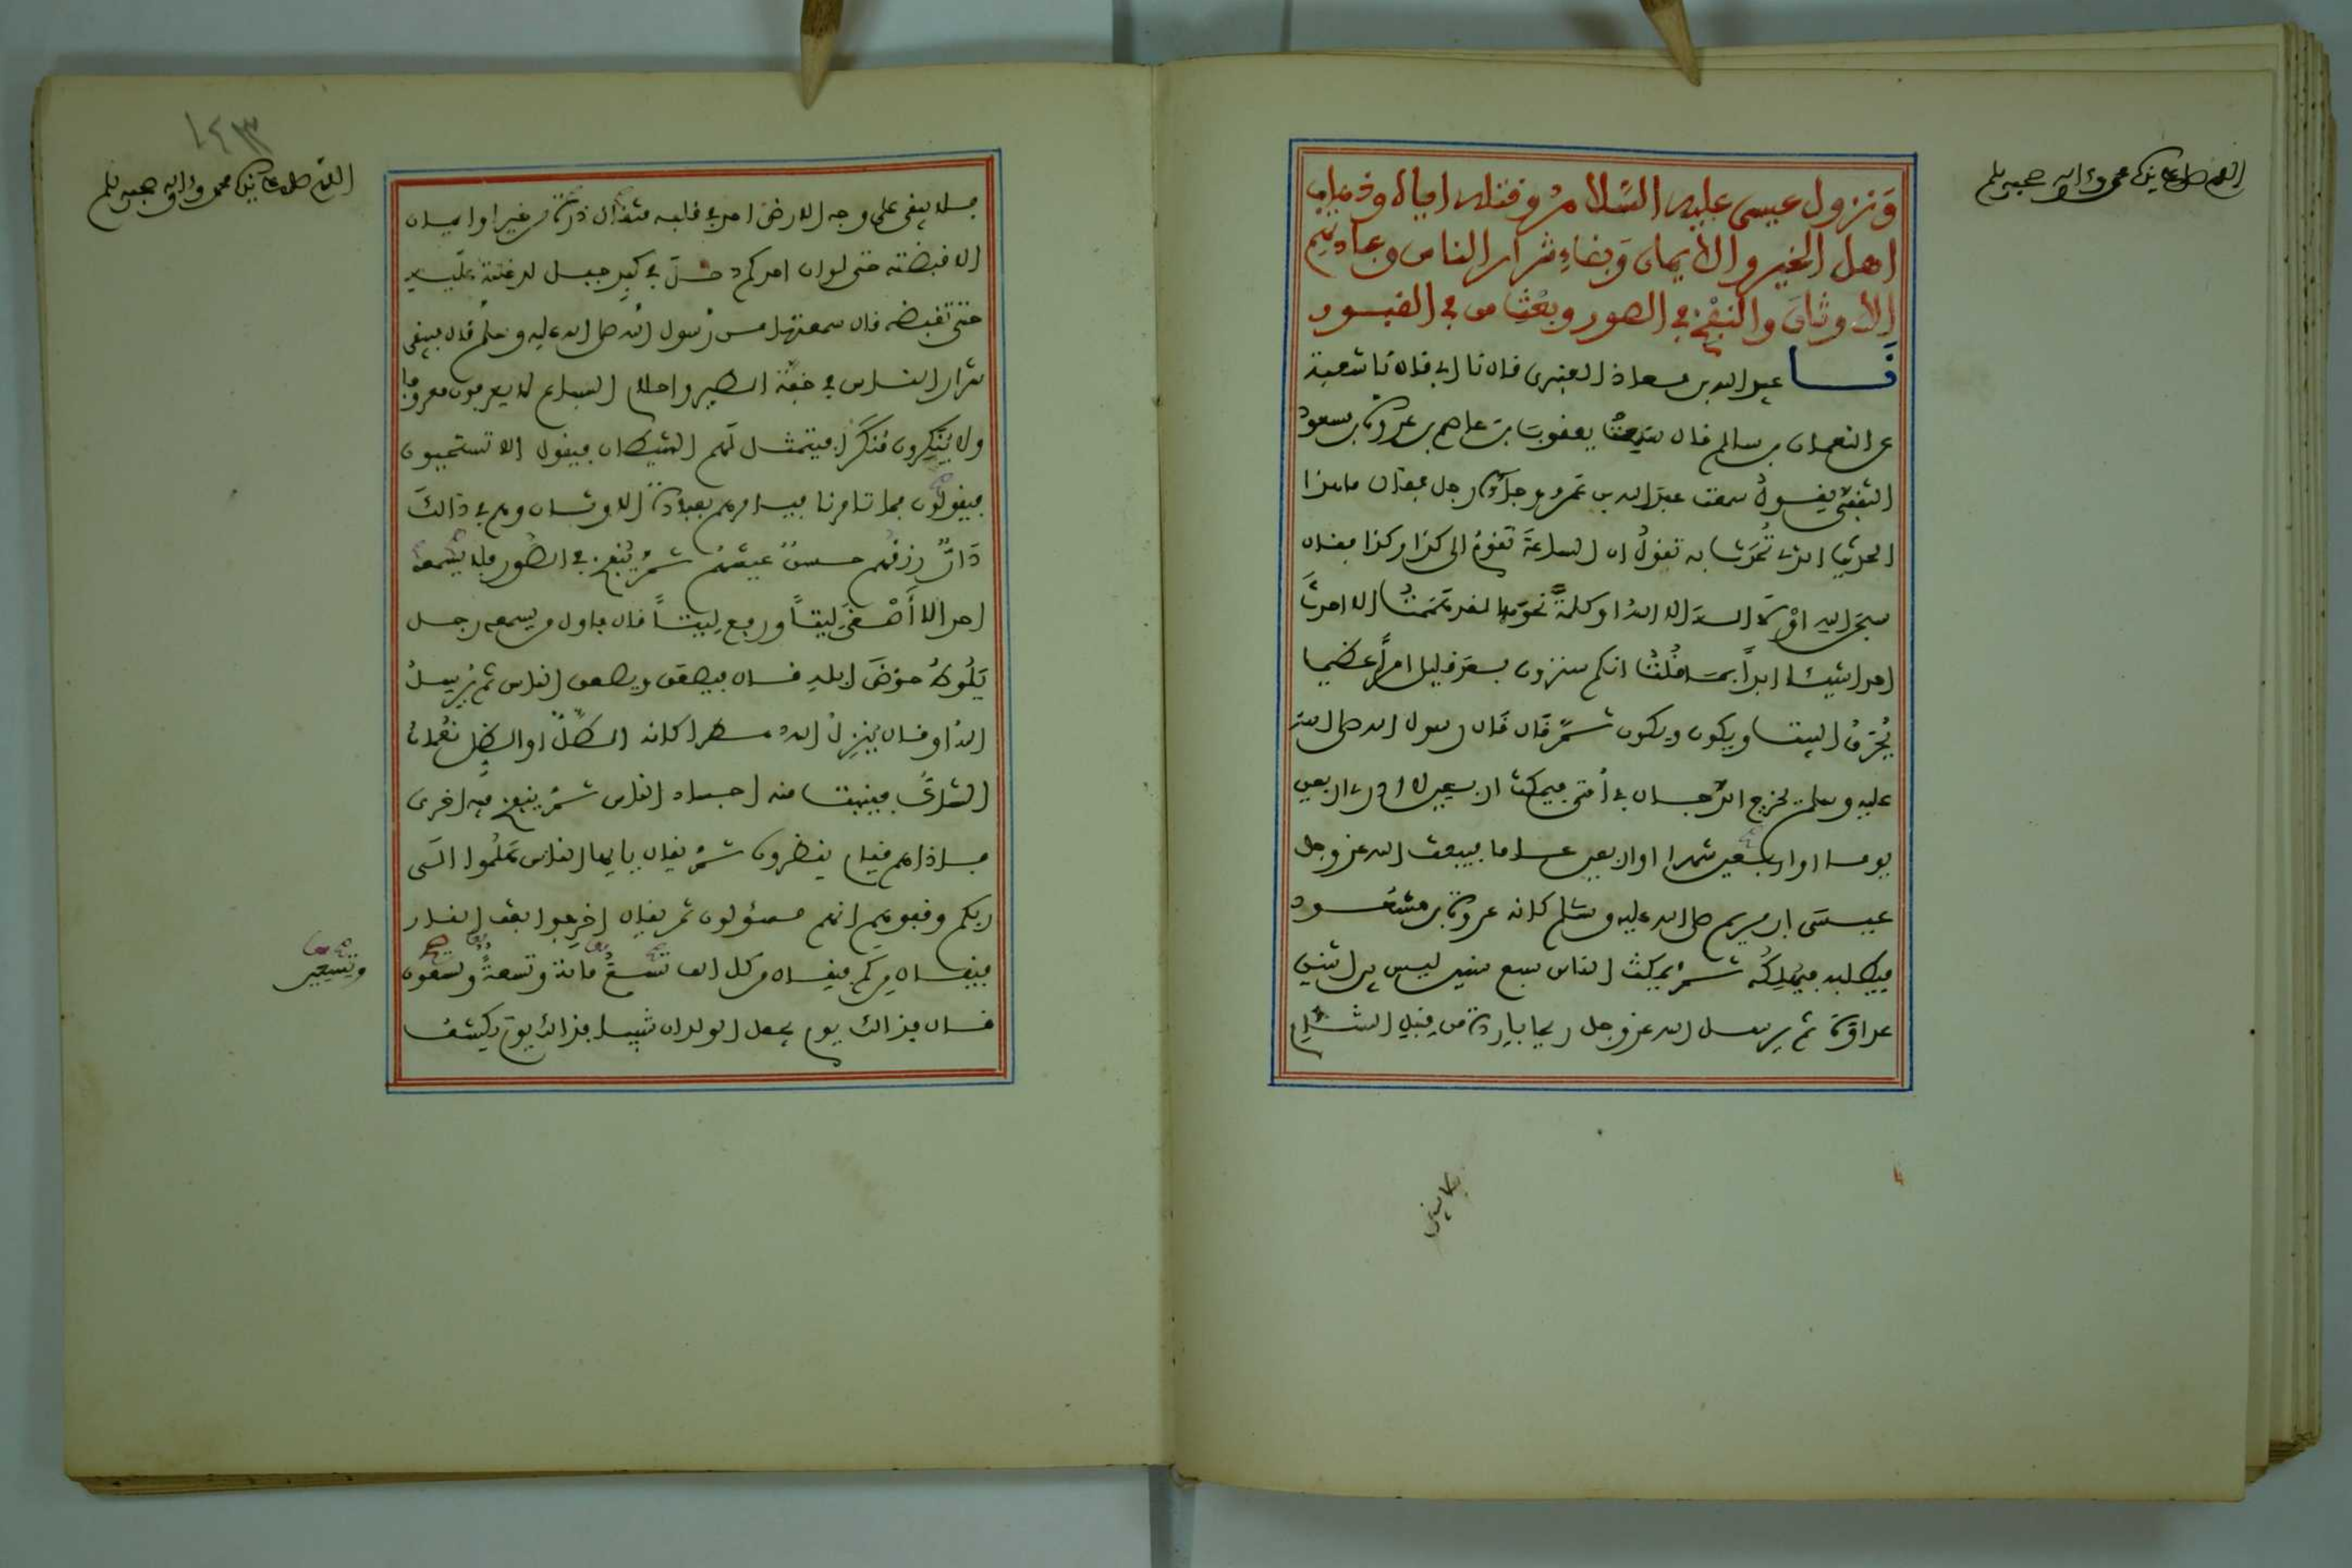 اللهم صل على نبينا محمد وآله وصحبه وسلم
وَنزول عيسى عليه السَّلامُ وقتله اياه وذهاب
اهل الخير والايمان وَبقاءِ شرار الناس وعبادتهم
الاوثانَ والنفْخ في الصور وبعْث من في القبور
نا عبيد الله بن معاذ العنبرى قال نا ابى قال نا شعبة
عن النعمان بن سالم قال سمعتُ يعقوبَ بن عاصم بن عروة بن مسعود
الثقفىّ يقولُ سمعت عبدَ الله بن عَمرو وجاءه رجل فقال ما هذا
الحديث الذى تُحَدّث به تقولُ ان الساعةَ تقومُ الى كذا وكذا فقال
سبحن الله اوْ لا الهَ الا اللهُ او كلمةً نحوَهما لقد هَمَمْتُ الا احدثَ
احدا شيئا ابداً انما قُلْتُ انكم سترون بعدَ قليل امراً عظيما
يُحَرَّقُ البيت ويكون ويكون ثمَّ قَال قَال رسول الله صلى الله
عليه وسلم يخرج الدّجال في اُمّتى فيمكث اربعين لا ادرى اربعين
يوما او اربعين شهرا او اربعين عاما فيبعث الله عز وجل
عيسَى ابن مريم صلى الله عليه وسَلم كانه عروة بن مسْعُود
فيطلبه فيُهلِكُه ثمَّ يمكثُ الناس سبع سنين ليس بين اثنين
عداوَة ثم يرسل الله عز وجل ريحا باردة من قِبَلِ الشّام
١٤٣
اللهم صل على نبينا محمد وآله وصحبه وسلم
فلا يبقى على وجه الارض احد في قلبه مثقال ذرة من خير او ايمان
الا قبضته حتى لو ان احدكم دخلَ في كبِد جبل لدخلتهُ عليه
حتى تقبضه قال سمعتها من رَسول الله صلى الله عليه وسلم قال فيبقى
شرار الناس في خفّة الطير واحلام السباع لا يعرفون معروفا
ولا يُنكِرون مُنكَراً فيتمثل لَهم الشيطان فيقول الا تستجيبون
فيقولون فما تامرنا فيامرهم بعبادة الاوثان وهم في ذالكَ
دَارٌّ رِزقُهم حسنٌ عيشهُم ثمَّ يُنفخ في الصُور فلا يسْمعه
احد الا أَصْغَى لِيتاً ورفع لِيتاً قال فاول من يسمعه رجل
يَلُوطُ حوْضَ ابله قال فيصعق ويصعق الناس ثم يُرسِلُ
اللهُ او قال يُنزِلُ الله مطرا كانه الطَّلُّ او الظِّل نعْمانُ
الشاكُّ فينبت منه اجساد الناس ثمَّ ينفخ فيه اخرى
فاذا هم قيام ينظرون ثمَّ يقال يا ايها الناس هَلُموا الَى
ربكم وقفوهم انهم مسئولون ثم يقال اخرِجوا بعث النار
فيقال من كم فيقال من كل الف تسعُ مائة وتسعةٌ وتسعون
وتسعين
قال فذالك يوم يجعل الولدان شيبا فذالك يومَ يكشف